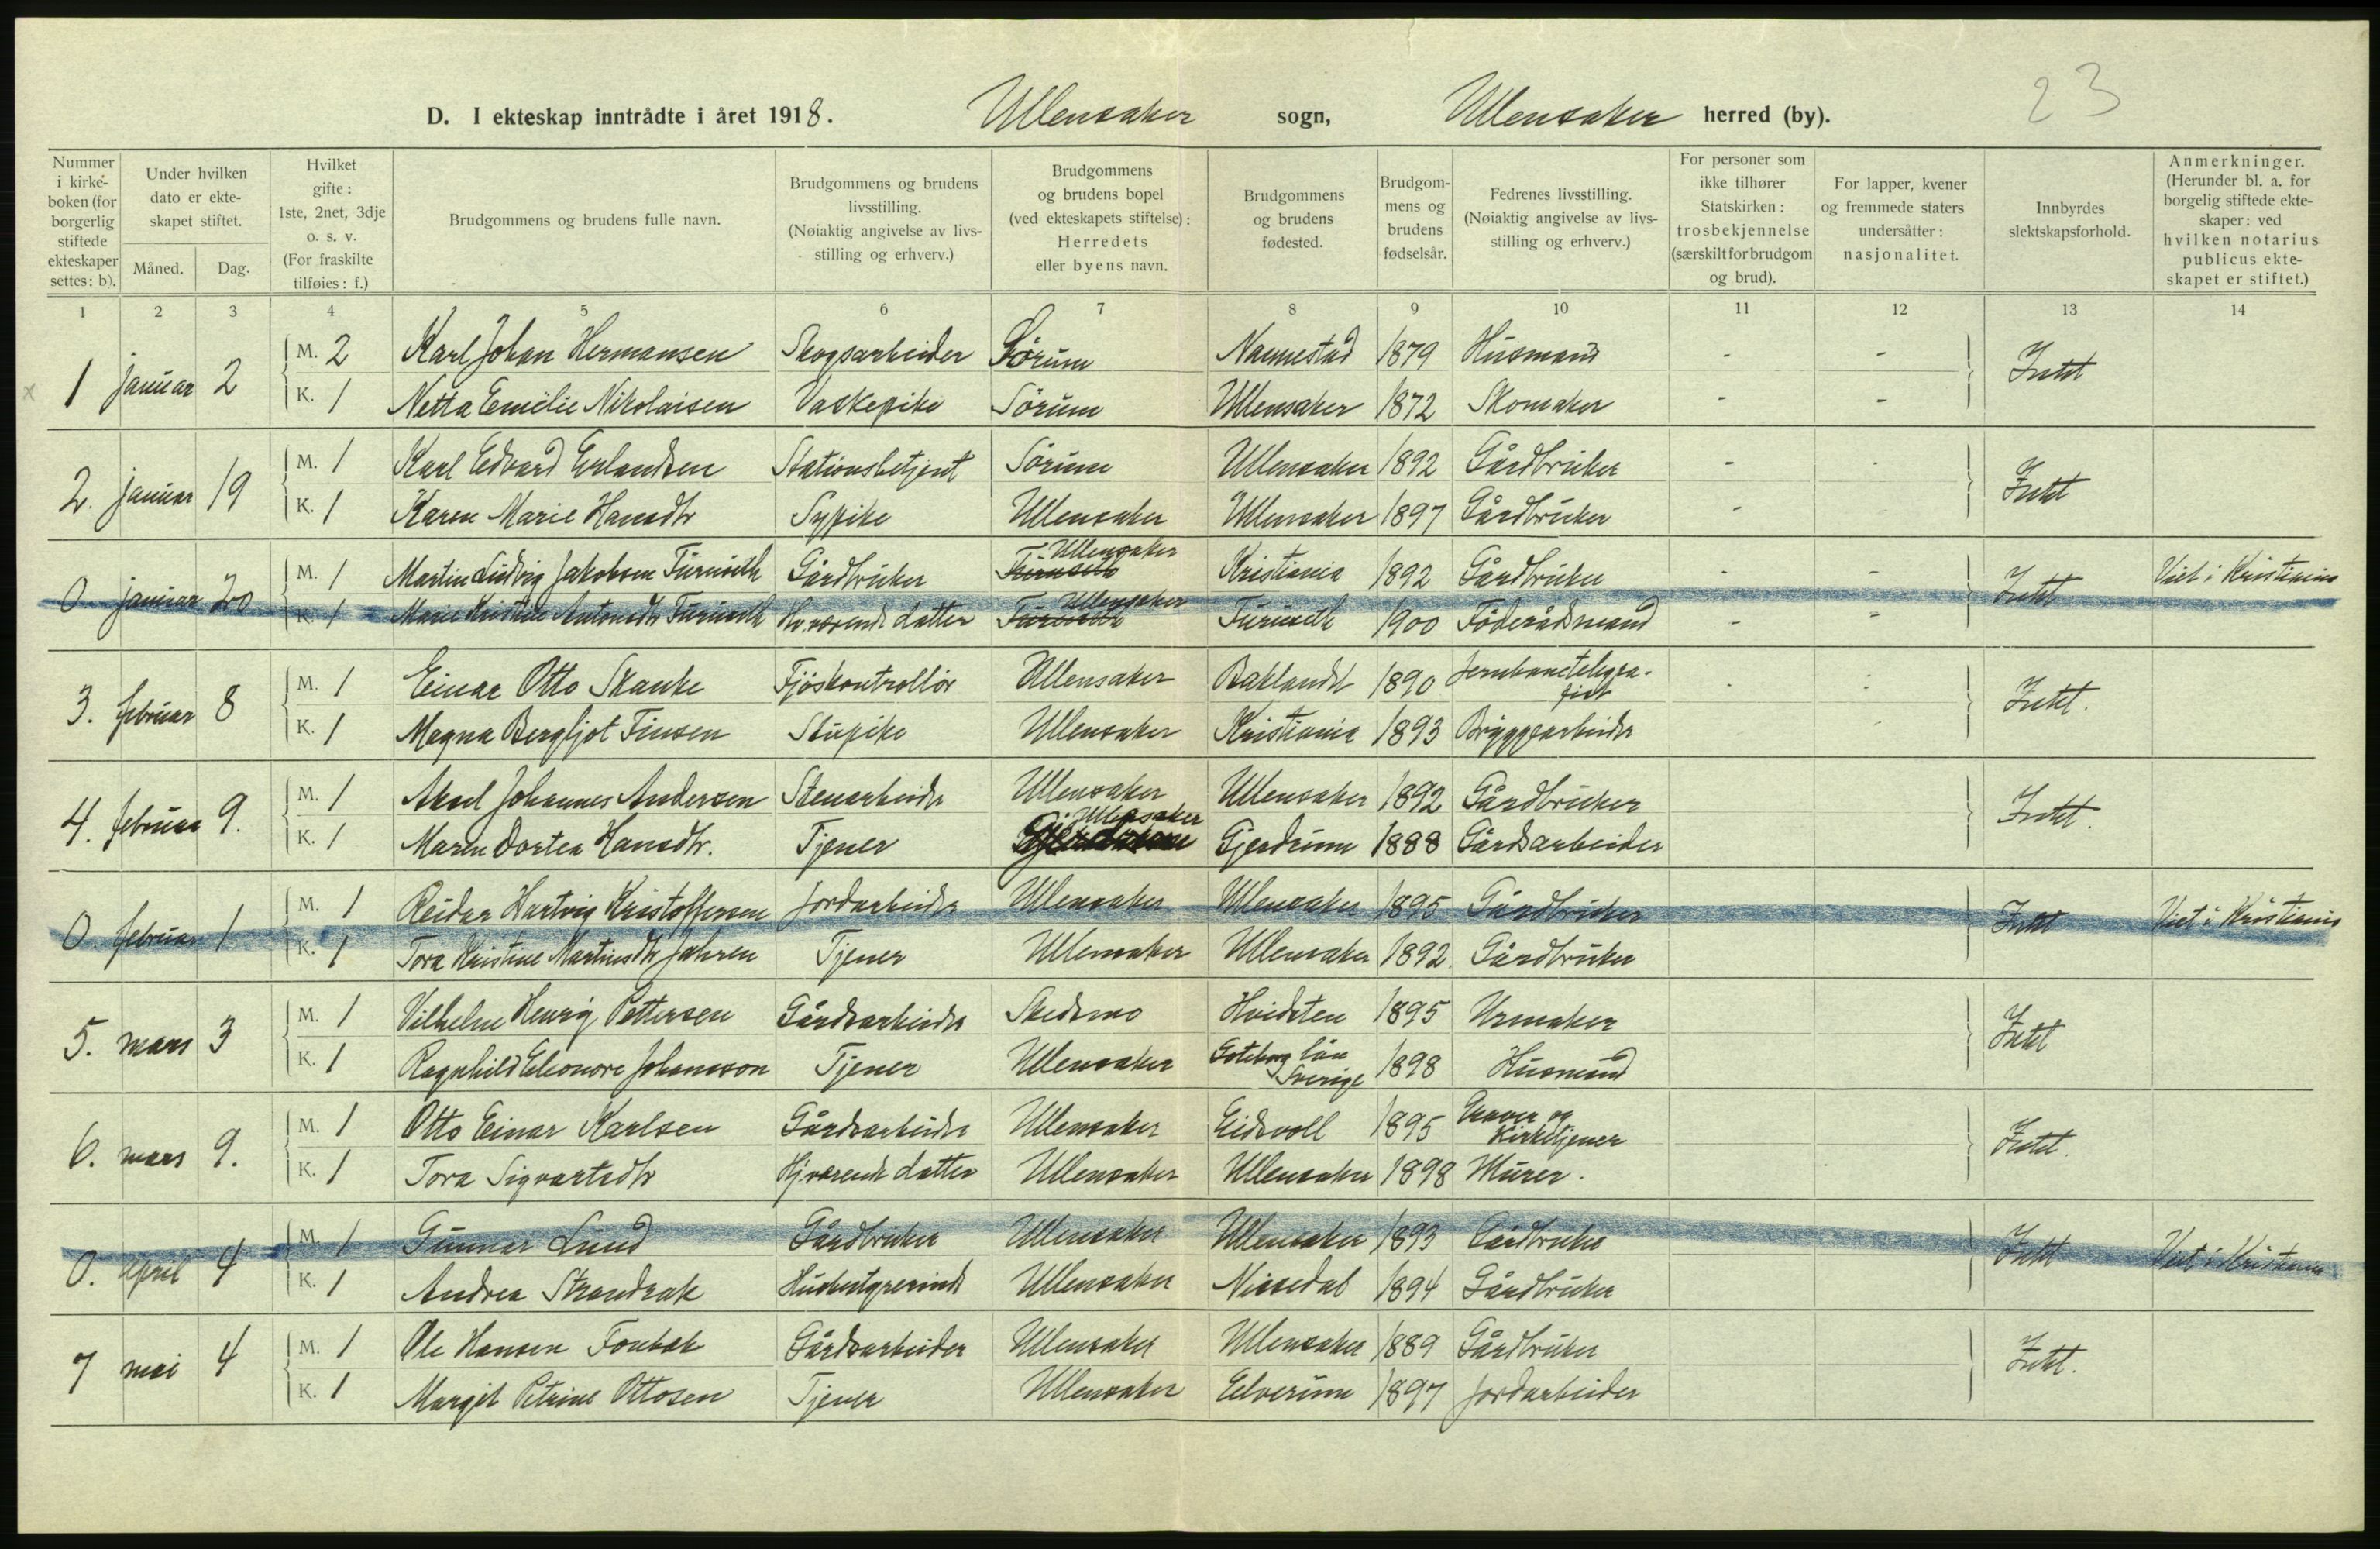 23
D. I ekteskap inntrådte i året 1918. Ullensaker sogn, Ullensaker herred (by).
Nummer i kirke-boken (for borgerlig stiftede ekteskaper settes: b).
Under hvilken dato er ekte-skapet stiftet.
Måned. Dag.
Hvilket gifte: 1ste, 2net, 3dje o. s. v. (For fraskilte tilføies: f.)
Brudgommens og brudens fulle navn.
Brudgommens og brudens livsstilling. (Nøiaktig angivelse av livs-stilling og erhverv.)
Brudgommens og brudens bopel (ved ekteskapets stiftelse): Herredets eller byens navn.
Brudgommens og brudens fødested.
Brudgom-mens og brudens fødselsår.
Fedrenes livsstilling. (Nøiaktig angivelse av livs-stilling og erhverv.)
For personer som ikke tilhører Statskirken: trosbekjennelse (særskilt for brudgom og brud).
For lapper, kvener og fremmede staters undersåtter: nasjonalitet.
Innbyrdes slektskapsforhold.
Anmerkninger. (Herunder bl. a. for borgelig stiftede ekte-skaper: ved hvilken notarius publicus ekte-skapet er stiftet.)
1 2 3 4 5 6 7 8 9 10 11 12 13 14
1 januar 2 M. 2 Karl Johan Hermansen Skogsarbeider Sörum Nannestad 1879 Husmand - - Intet
K. 1 Netta Emilie Nikolaisen Vaskepike Sörum Ullensaker 1872 Skomaker - -
2. januar 19 M. 1 Karl Edvard Erlandsen Stationsbetjent Sörum Ullensaker 1892 Gårdbruker - - Intet
K. 1 Karen Marie Hansdtr Sypike Ullensaker Ullensaker 1897 Gårdbruker -
0. januar 20 M. 1 Martin Ludvig Jakobsen Furuseth Gårdbruker Furuseth Ullensaker Kristiania 1892 Gårdbruker - - Intet Viet i Kristiania
K. 1 Marie Kristine Antonsdtr Furuseth Hj.værende datter Furuseth Ullensaker Furuseth 1900 Föderådsmand - -
3. februar 8 M. 1 Einar Otto Skanke Fjöskontrollör Ullensaker Baklandet 1890 Jernbanetelegra-fist Intet.
K. 1 Magna Bergljot Finsen Stupike Ullensaker Kristiania 1893 Bryggearbeider
4. februar 9. M. 1 Aksel Johannes Andersen Stenarbeider Ullensaker Ullensaker 1892 Gårdbruker Intet.
K. 1 Maren Dortea Hansdtr. Tjener Ullensaker Gjerdrum 1888 Gårdsarbeider
0. februar 1 M. 1 Reidar Hartvig Kristoffersen Jordarbeider Ullensaker Ullensaker 1895 Gårdbruker Intet Viet i Kristiania
K. 1 Tora Kristine Martinsdtr Jahren Tjener Ullensaker Ullensaker 1892. Gårdbruker
5. mars 3 M. 1 Vilhelm Henrij Pettersen Gårdsarbeider Skedsmo Hvidsten 1895 Urmaker Intet
K. 1 Ragnhild Eleonore Johansson Tjener Ullensaker Göteborg län Sverige 1898 Husmand
6. mars 9. M. 1 Otto Einar Karlsen Gårdsarbeider Ullensaker Eidsvoll 1895 Graver og Kirketjener Intet.
K. 1 Tora Sigvartsdtr Hj.værende datter Ullensaker Ullensaker 1898 Murer.
0. april 4 M. 1 Gunnar Lund Gårdbruker Ullensaker Ullensaker 1893 Gårdbruker Intet Viet i Kristiania
K. 1 Andrea Strandrak Husbestyrerinde Ullensaker Nissedal 1894 Gårdbruker
7 mai 4 M. 1 Ole Hansen Fonbæk Gårdsarbeider Ullensaker Ullensaker 1889 Gårdbruker Intet.
K. 1 Margit Petrine Ottosen Tjener Ullensaker Elverum 1897 Jordarbeider